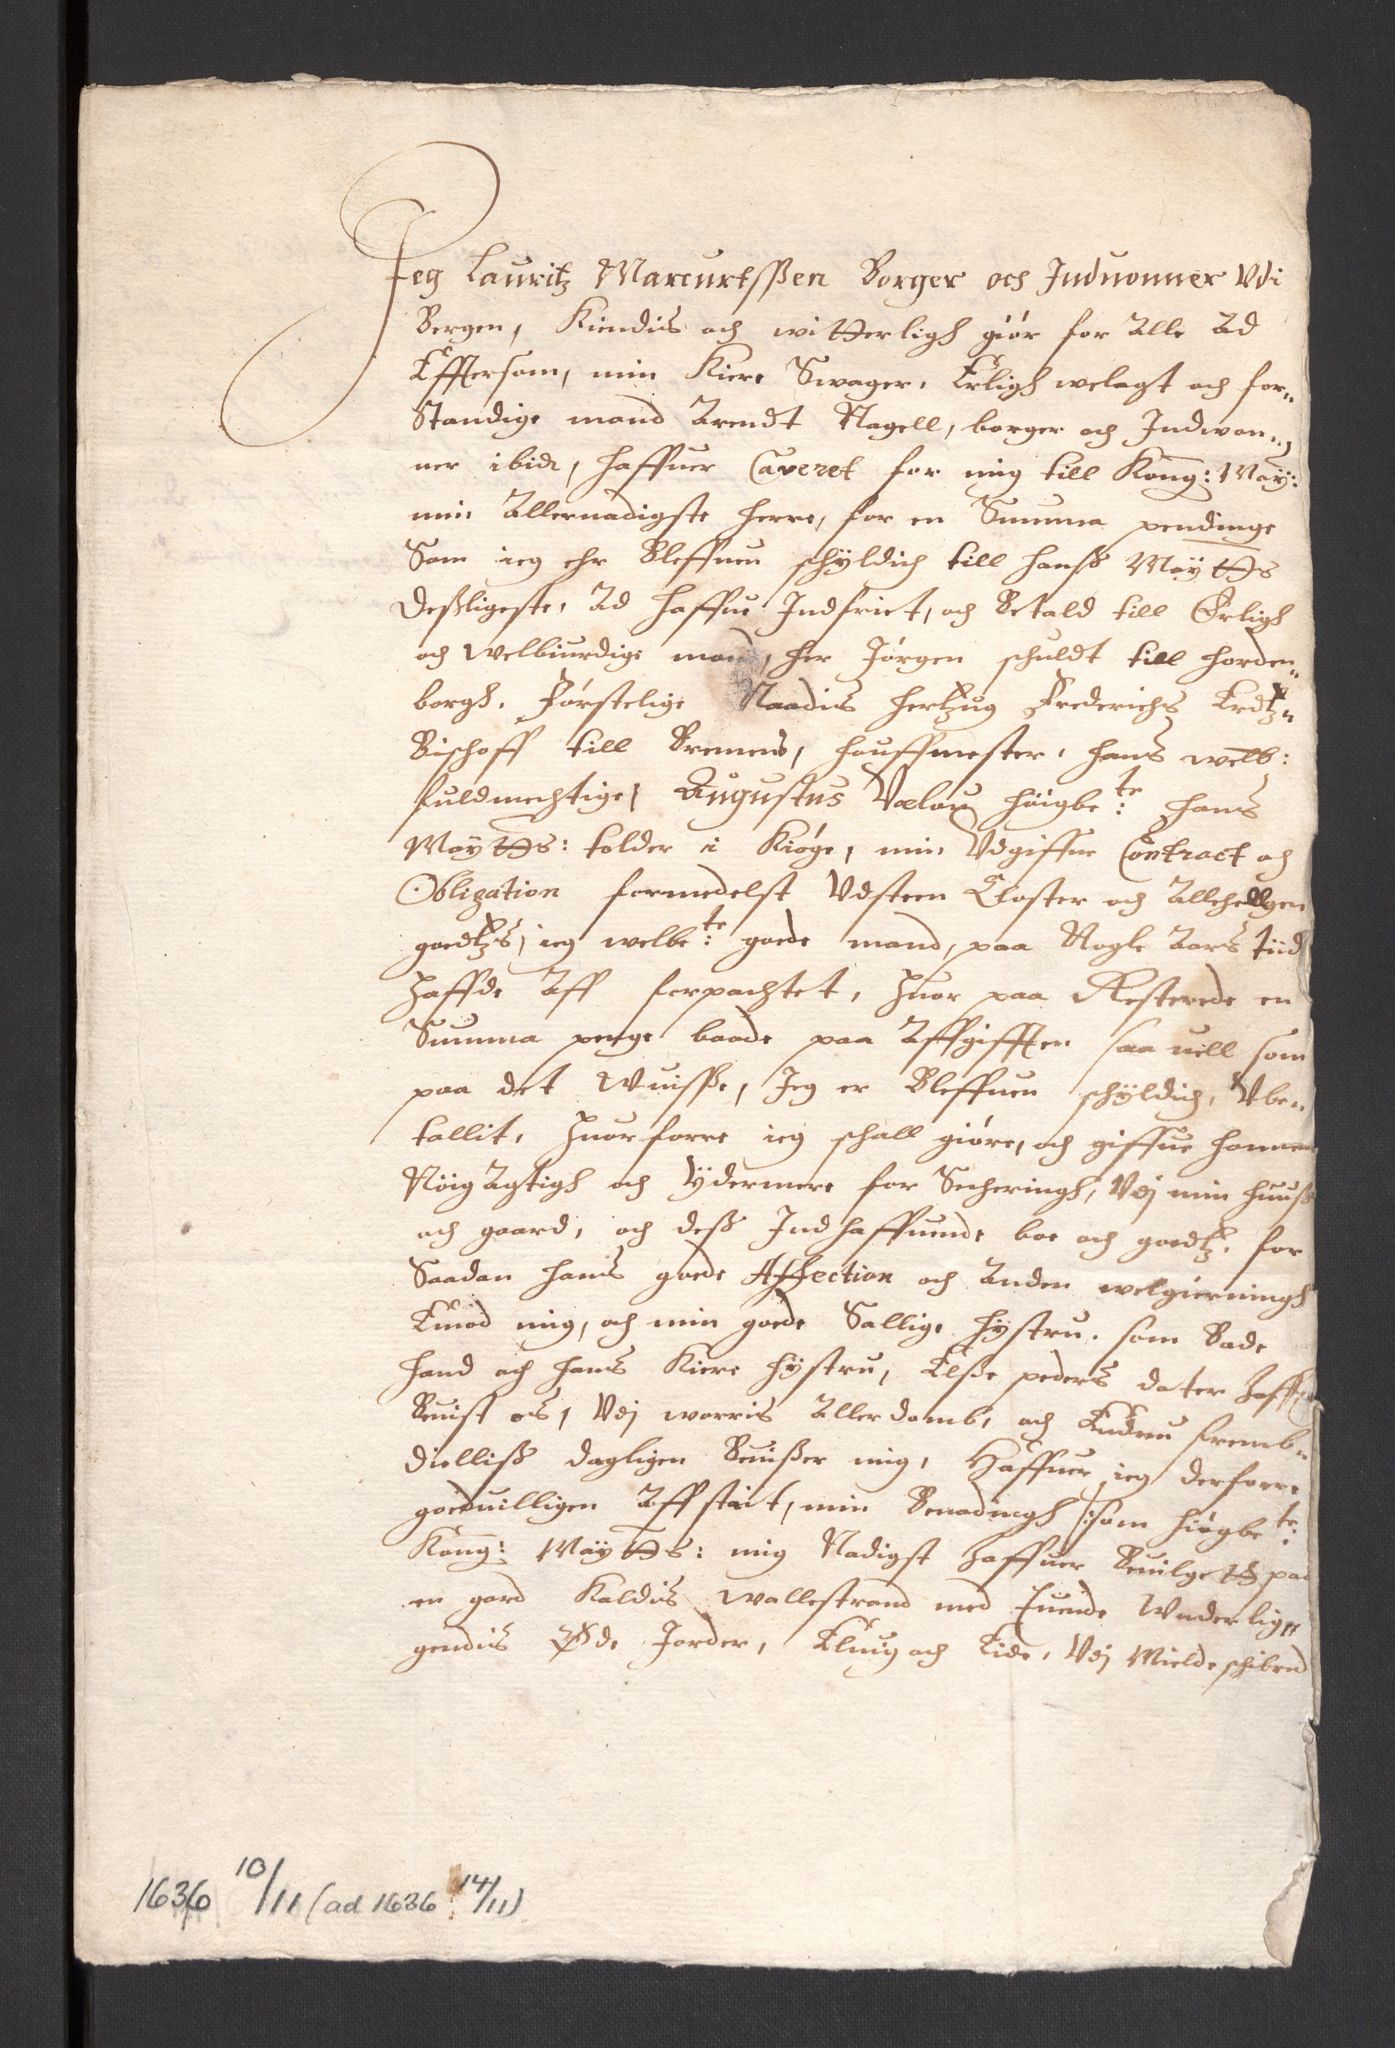 Jeg Lauritz Marcurtsßen Borger och Induonner Vdi
Bergen, Kiendis och witterligh giör for Alle Ad
Effterson, min Kiere Swager, Erligh welagt och for„
Standige mand Arendt Nagell, borger och Indwon„
ner ibid, haffuer Caveret for mig till Kong: May:
min Allernadigste herre, for en Summa pendinge
Som ieg ehr Bleffuen schyldich till hanß Maytts
Deßligeste, Ad haffue Indfriet, och Betald till Erligh
och Welbiurdige mand, her Jörgen schuldt till horden„
borgh. Förstelige Naadis hertzug Frederichs Erdtz„
Bischoff till Bremens, houffmester, hans welb:
fuldmechtige, Augustus höigbe:te hans
Maytts: tolder i Kiöge, min Vdgiffne Contract och
Obligation formedelst Vdsteen Closter och Allehellgen
goedtzs, ieg welbe:te goede mand, paa Nogle Aars tiid
haffde Aff forpachtet, huor paa Resterede en
Summa penge baade paa Affgifften saa uell som
paa det Wuisse, Jeg er Bleffuen schyldich, Vbe„
tallit, huor forre ieg schall giöre, och giffue hannem
Nöigagtigh och Ydermere for Secheringh, Vdj min huuß
och gaard, och deß Indhaffuende boe och goedtz. for
Saadan hans goede Affection och Anden welgierningh
Emod mig, och min goede Sallige hystru. som Bade
hand och hans Kiere hystru, Elße peders dater haffuer
Beuist os, Vdj worris Allerdomb, och Endnu fremb„
diellß dagligen Beuißer mig, Haffuer ieg derforre
goeduilligen Affstait, min Benadingh som högbe:te
Kong: Maytts: mig Nadigst haffuer Beuilgett paa
en gard Kaldis Wallestrand med Wnderlig„
gendis Øde Jorder, och Eide, Vdj Mielde schibred
1636 10/11 (ad 1636 14/11)